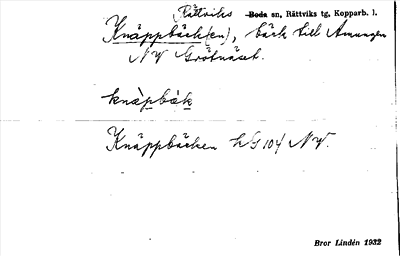 Rättviks Boda sn, Rättviks tg, Kopparb. l.
Knäppbäck(en), bäck till Amungen
NV Grötnäset.
knäpbäk
Knäppbäcken LS 104 NV.
Bror Lindén 1932